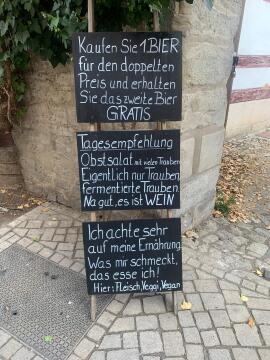 Kaufen Sie 1 BIER
für den doppelten
Preis und erhalten
Sie das zweite Bier
GRATIS
Tagesempfehlung
Obstsalat mit vielen Trauben
Eigentlich nur Trauben
fermentierte Trauben.
Na gut, es ist WEIN
Ich achte sehr
auf meine Ernährung.
Was mir schmeckt,
das esse ich!
Hier: Fleisch, Veggi, Vegan